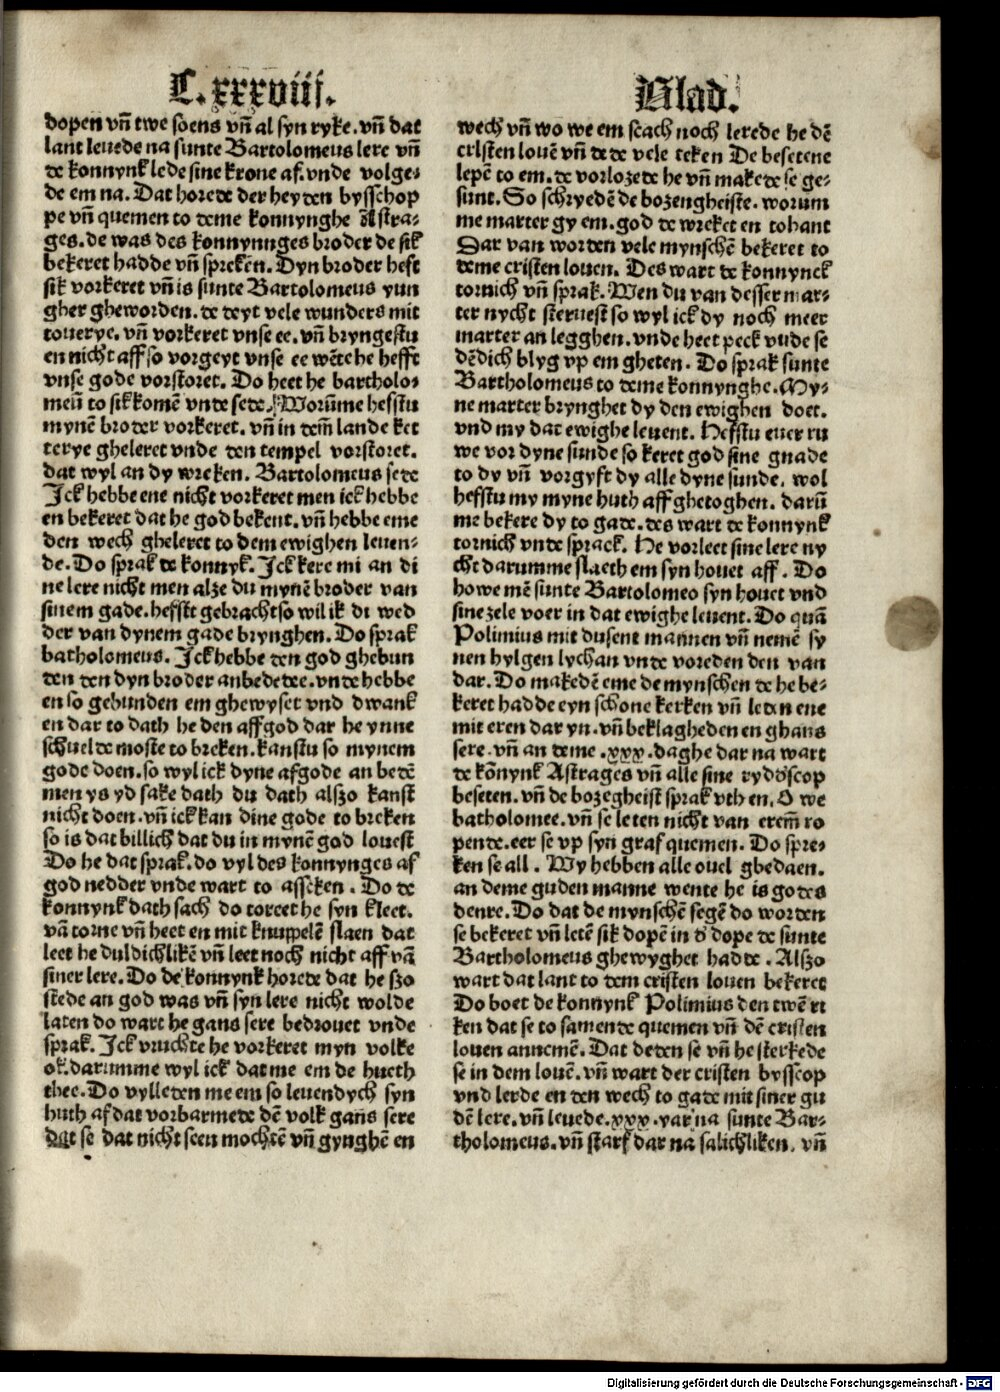 C.xxxviij. Blad.
dopen vn̄ twe soens vn̄ al syn ryke. vn̄ dat
lant leuede na sunte Bartolomeus lere vn̄
de konnynk lede sine krone af. vnde volge⸗
de em na. Dat horede der heyden bysschop
pe vn̄ quemen to deme konnynghe Astra⸗
ges. de was des konnynnges broder de sik
bekeret hadde vn̄ sprekēn. Dyn broder heft
sik vorkeret vn̄ is sunte Bartolomeus yun
gher gheworden. de deyt vele wunders mit
touerye. vn̄ vorkeret vnse ee. vn̄ bryngestu
en nicht aff so vorgeyt vnse ee wēte he hefft
vnse gode vorstoret. Do heet he bartholo⸗
meū to sik komē vnde sede. Worūme hefstu
mynē broder vorkeret. vn̄ in dem̄ lande ket
terye gheleret vnde den tempel vorstoret.
dat wyl an dy wreken. Bartolomeus sede
Jck hebbe ene nicht vorkeret men ick hebbe
en bekeret dat he god bekent. vn̄ hebbe eme
den wech gheleret to dem ewighen leuen⸗
de. Do sprak de konnyk. Jck kere mi an di
ne lere nicht men alze du mynē broder van
sinem gade. hefft gebracht so wil ik di wed
der van dynem gade brynghen. Do sprak
batholomeus. Jck hebbe den god ghebun
den den dyn broder anbedede. vnde hebbe
en so gebunden em ghewyset vnd dwank
en dar to dath he den affgod dar he ynne
schuelde moste to breken. kanstu so mynem
gode doen. so wyl ick dyne afgode an bedē
men ys yd sake dath du dath alszo kanst
nicht doen. vn̄ ick kan dine gode to breken
so is dat billich dat du in mynē god louest
Do he dat sprak. do vyl des konnynges af
god nedder vnde wart to asseken. Do de
konnynk dath sach do toreet he syn kleet.
vā torne vn̄ heet en mit knuppelē slaen dat
leet he duldichlikē vn̄ leet noch nicht aff vā
siner lere. Do de konnynk horede dat he szo
stede an god was vn̄ syn lere nicht wolde
laten do wart he gans sere bedrouet vnde
sprak. Jck vruchte he vorkeret myn volke
ok. darumme wyl ick dat me em de hueth
thee. Do vylleden me em so leuendych syn
huth af dat vorbarmede dē volk gans sere
dat se dat nicht seen mochtē vn̄ gynghē en
wech vn̄ wo we em scach noch lerede he dē
cristen louē vn̄ dede vele teken De besetene
lepē to em. de vorlozede he vn̄ makede se ge⸗
sunt. So schryedē de bozengheiste. worum
me marter gy em. god de wreket en tohant
Dar van worden vele mynschē bekeret to
deme cristen louen. Des wart de konnynck
tornich vn̄ sprak. Wen du van desser mar⸗
ter nycht steruest so wyl ick dy noch meer
marter an legghen. vnde heet peck vnde se
dēdich blyg vp em gheten. Do sprak sunte
Bartholomeus to deme konnynghe. My⸗
ne marter brynghet dy den ewighen doet.
vnd my dat ewighe leuent. Hefftu euer ru
we vor dyne sunde so keret god sine gnade
to dy vn̄ vorgyft dy alle dyne sunde. wol
hefstu my myne huth aff ghetoghen. darū
me bekere dy to gade. des wart de konnynk
tornich vnde sprack. He vorleet sine lere ny
cht darumme slaeth em syn houet aff. Do
howe mē sunte Bartolomeo syn houet vnd
sine zele voer in dat ewighe leuent. Do quā
Polimius mit dusent mannen vn̄ nemē sy
nen hylgen lychan vnde voreden den van
dar. Do makedē eme de mynschen de he be⸗
keret hadde eyn schone kerken vn̄ leden ene
mit eren dar yn. vn̄ beklagheden en ghans
sere. vn̄ an deme .xxx. daghe dar na wart
de kōnynk Astrages vn̄ alle sine byscop
beseten. vn̄ de bozegheist sprak vth en. O we
batholomee. vn̄ se leten nicht van erem̄ ro
pende. eer se vp syn graf quemen. Do spre⸗
ken se all. Wy hebben alle ouel ghedaen.
an deme guden manne wente he is godes
denre. Do dat de mynschē segē do worden
se bekeret vn̄ letē sik dopē in d̄ dope de sunte
Bartholomeus ghewyghet hadde. Alszo
wart dat lant to dem cristen louen bekeret
Do boet de konnynk Polimius den twē ri
ken dat se to samende quemen vn̄ dē cristen
louen annemē. Dat deden se vn̄ he sterkede
se in dem louē. vn̄ wart der cristen bysscop
vnd lerde en den wech to gade mit siner gu
dē lere. vn̄ leuede .xxx. yar na sunte Bar⸗
tholomeus. vn̄ starf dar na salichliken. vn̄
Digitalisierung gefördert durch die Deutsche Forschungsgemeinschaft - DFG